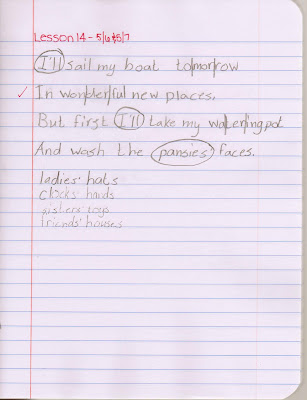 Lesson 14 - 5/6 & 5/7
I'll sail my boat to/mor/row
✓ In won/der/ful new places,
But first I'll take my wa/ter/ing pot
And wash the pansies faces.
ladies' hats
clocks' hands
sisters' toys
friends' houses